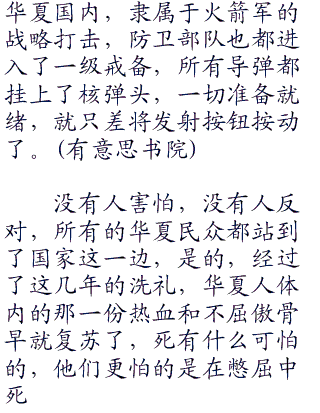 华夏国内，隶属于火箭军的
战略打击，防卫部队也都进
入了一级戒备，所有导弹都
挂上了核弹头，一切准备就
绪，就只差将发射按钮按动
了。(有意思书院)
没有人害怕，没有人反
对，所有的华夏民众都站到
了国家这一边，是的，经过
了这几年的洗礼，华夏人体
内的那一份热血和不屈傲骨
早就复苏了，死有什么可怕
的，他们更怕的是在憋屈中
死